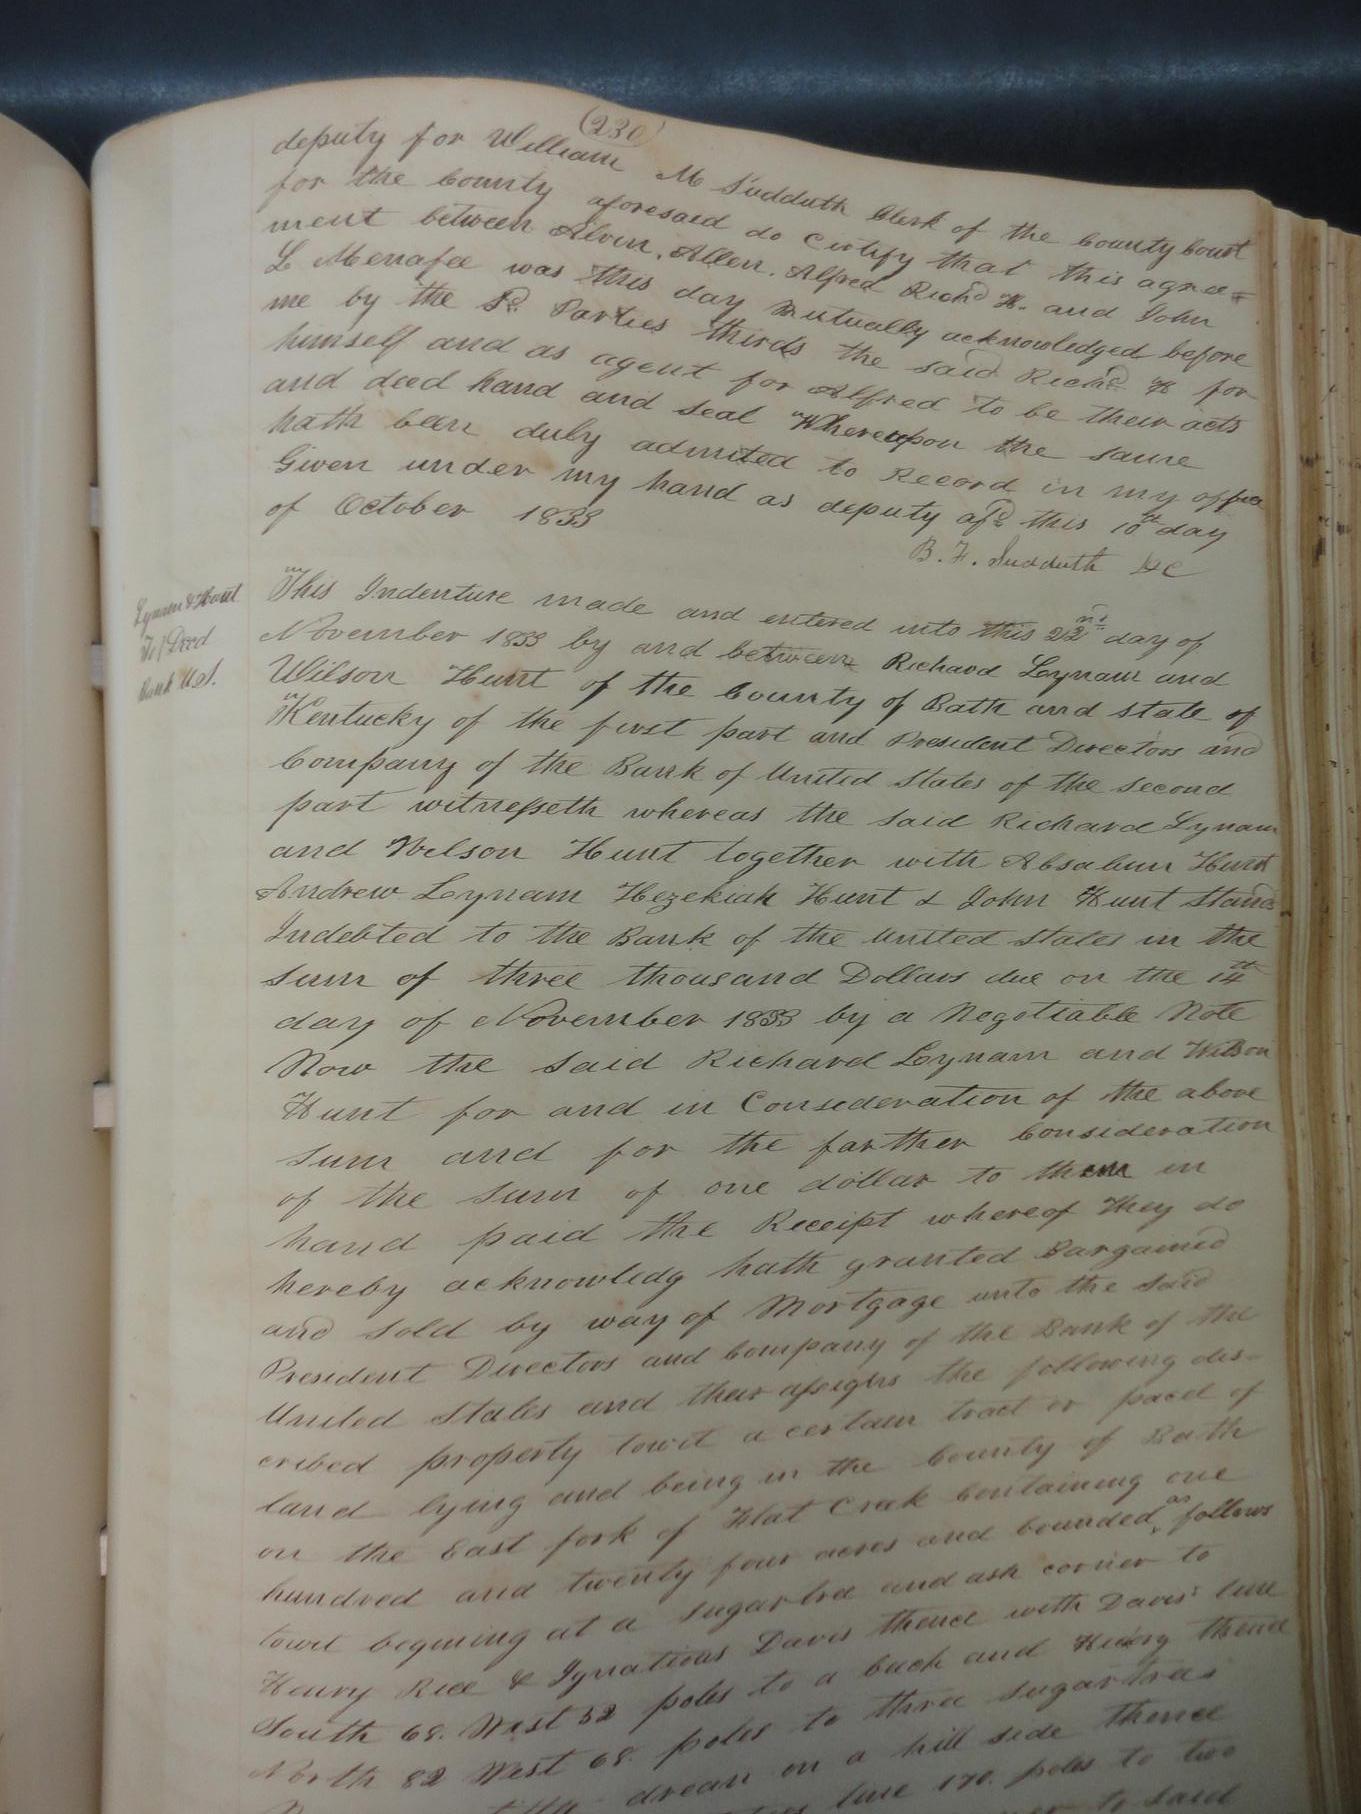 (230)
deputy for William M Sudduth Clerk of the County Court
for the County aforesaid do Certify that this agree=
ment between Alvin, Allen, Alfred Richd H. and John
L Menafee was this day mutually acknowledged before
me by the Sd. Parties thirds the said Richd H for
himself and as agent for Alfred to be their acts
and deed hand and seal Whereupon the same
hath been duly admited to Record in my office
Given under my hand as deputy afsd this 10th day
of October 1833
B. F. Sudduth DC
Lynam & Hunt
To/Deed
Bank U.S.
This Indenture made and entered into this 22nd day of
November 1833 by and between Richard Lynam and
Wilson Hunt of the County of Bath and state of
Kentucky of the first part and President Directors and
Company of the Bank of United States of the second
part witnesseth whereas the said Richard Lynam
and Wilson Hunt together with Absalum Hunt
Andrew Lynam Hezekiah Hunt & John Hunt Stand
Indebted to the Bank of the United States in the
sum of three thousand Dollars due on the 14th
day of November 1833 by a Negotiable Note
Now the said Richard Lynam and Wilson
Hunt for and in Consideration of the above
sum and for the farther Consideration
of the sum of one dollar to them in
hand paid the Receipt whereof they do
hereby acknowledg hath granted Bargained
and sold by way of Mortgage unto the said
President Directors and Company of the Bank of the
United States and their assigns the following des-
cribed property towit a certain tract or pacel of
land lying and being in the County of Bath
on the East fork of Flat Creek Containing one
hundred and twenty four acres and bounded as follows
towit begining at a sugartree and ash corner to
Henry Rice & Ignatious Davis thence with Davis' line
South 68. West 52 poles to a buck and Hickry thence
North 82 West 68. poles to three sugartrees
drean on a hill side thence
line 170. poles to two
to said